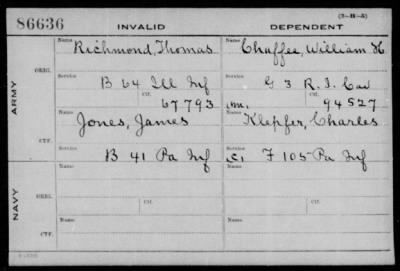 86636 INVALID DEPENDENT (3-H-5)
Name Richmond, Thomas Name Chaffee, William H
ARMY
ORIG. Service B 64 Ill Inf Service G 3 R.I. Cav
Ctf. 67793 Ctf. 94527
Name Jones, James Name Klepfer, Charles
CTF. Service B 41 Pa Inf Service F 105 Pa Inf
NAVY
Name Ctf. Name Ctf.
ORIG. Service Service
Name Name
CTF. Service Service